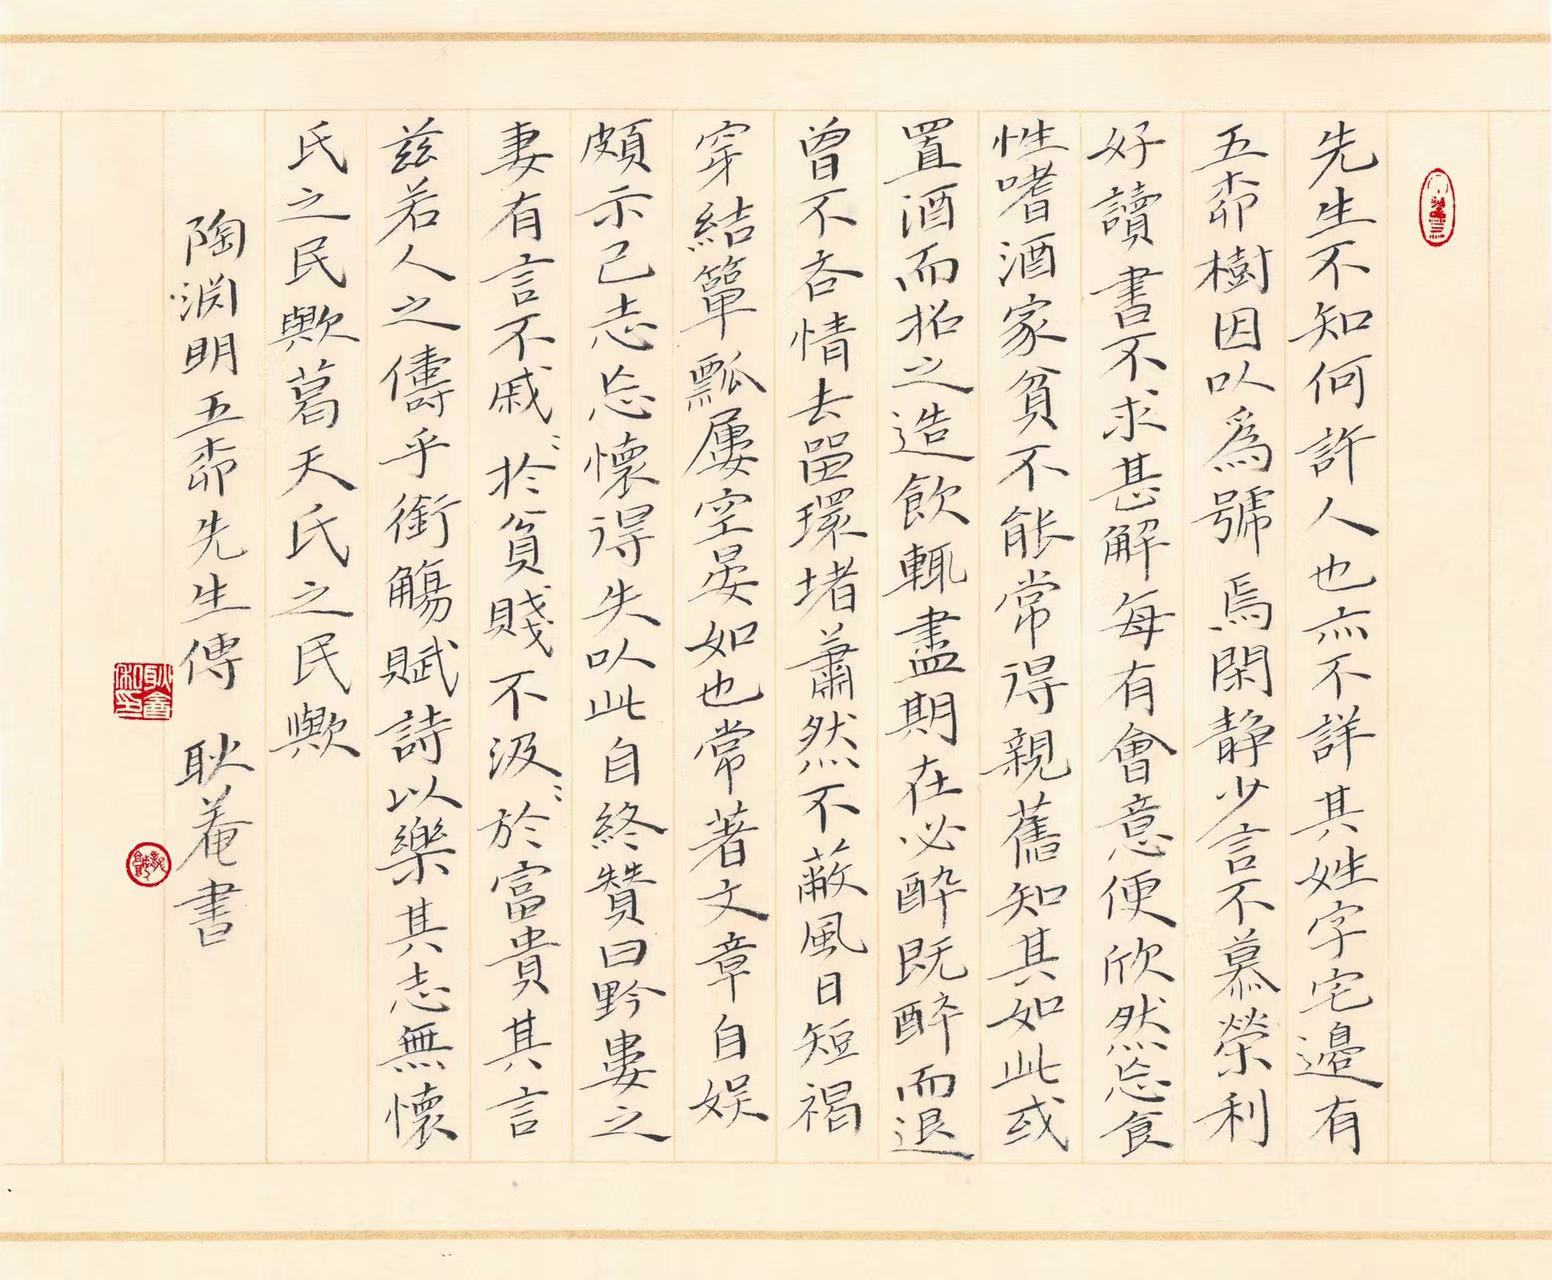 先生不知何許人也亦不詳其姓字宅邊有
五桺樹因以爲號焉閑静少言不慕榮利
好讀書不求甚解每有會意便欣然忘食
性嗜酒家貧不能常得親舊知其如此或
置酒而招之造飲輒盡期在必醉既醉而退
曾不吝情去畱環堵蕭然不蔽風日短褐
穿結簞瓢屢空晏如也常著文章自娱
頗示己志忘懷得失以此自終贊曰黔婁之
妻有言不戚〻於貧賤不汲〻於富貴其言
兹若人之儔乎銜觴賦詩以樂其志無懷
氏之民歟葛天氏之民歟
陶渊明五桺先生傳 耿菴書